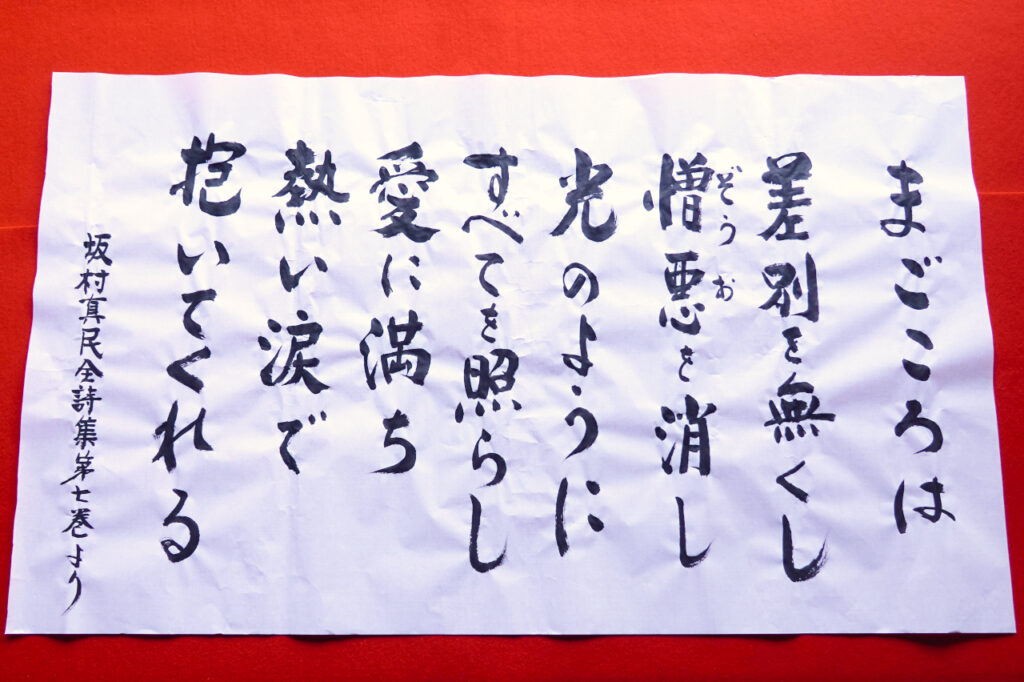 まごころは
差別を無くし
憎悪を消し
ぞうお
光のように
すべてを照らし
愛に満ち
熱い涙で
抱いてくれる
坂村真民全詩集第七巻より